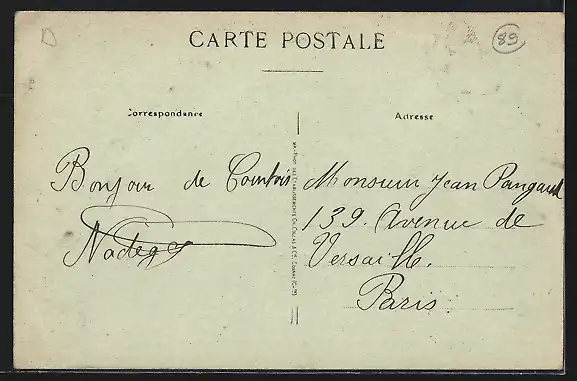 89
CARTE POSTALE
Correspondance
Adresse
Bonjour de Comtois
Nadège
Monsieur Jean Pangaud
139. Avenue de
Versaille.
Paris.